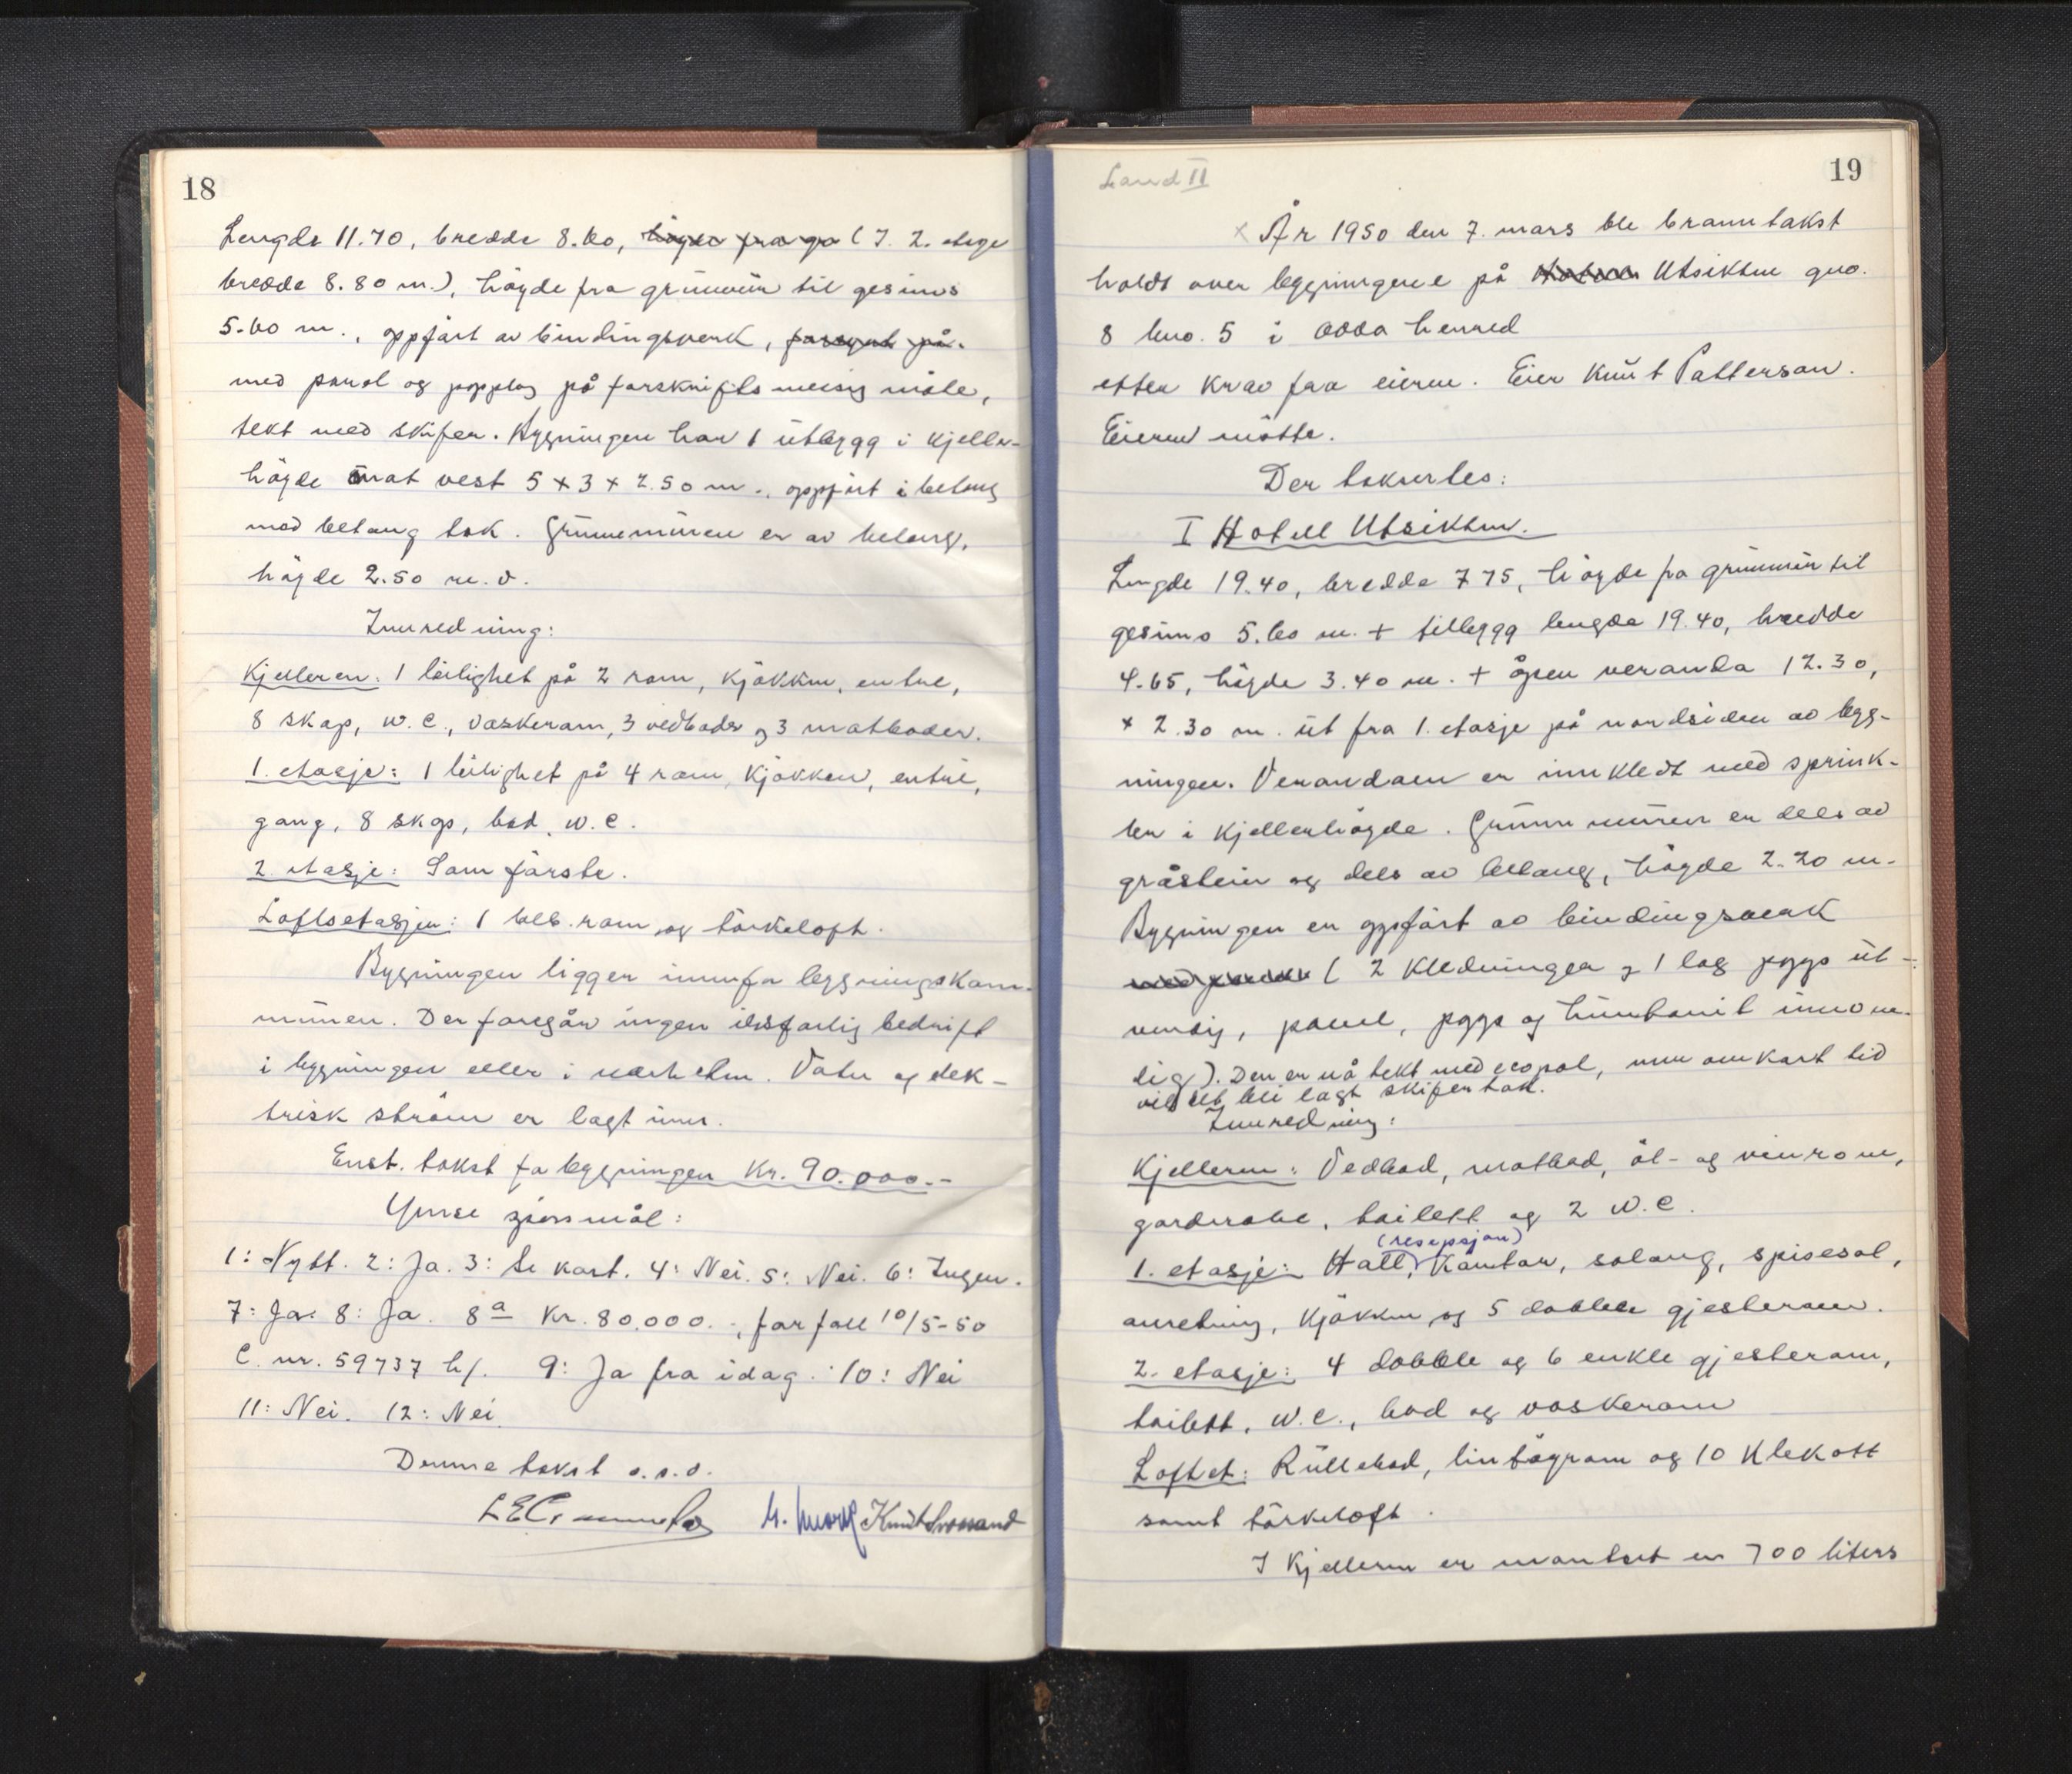 18
Lengde 11.70, bredde 8.60, høgde fra gr (I 2. etasje
bredde 8.80 m.), høgde fra grunnmur til gesims
5.60 m., oppført av bindingsverk, forsynt på
med panel og papplag på forskriftsmessig måte,
tekt med skifer. Bygningen har 1 utbygg i kjeller-
høgde mot vest 5 x 3 x 2.50 m., oppført i betong
med betong tak. Grunnmuren er av betong,
høgde 2.50 m.v.
Innredning:
Kjelleren: 1 leilighet på 2 rom, kjøkken, entre,
8 skap, w.c., vaskerom, 3 vedboder og 3 matboder.
1. etasje: 1 leilighet på 4 rom, kjøkken, entre,
gang, 8 skap, bad, w.c.
2. etasje: Som første.
Loftsetasjen: 1 beb. rom og tørkeloft.
Bygningen ligger innafor bygningskom-
munen. Der foregår ingen ildsfarlig bedrift
i bygningen eller i nærheten. Vatn og elek-
trisk strøm er lagt inn.
Enst. takst for bygningen Kr. 90.000.-
Ymse spørsmål:
1: Nytt. 2: Ja. 3: Se kart. 4: Nei. 5: Nei. 6: Ingen.
7: Ja. 8: Ja. 8a Kr. 80.000.-, forfall 10/5-50
C. nr. 59737 h/. 9: Ja fra idag. 10: Nei
11: Nei. 12: Nei.
Denne takst o.s.v.
Land II
19
x År 1950 den 7. mars ble branntakst
holdt over bygningene på Hotell Utsikten gno.
8 bno. 5 i Odda herred
etter krav fra eieren. Eier Knut Patterson.
Eieren møtte.
Der takseres:
I Hotell Utsikten.
Lengde 19.40, bredde 7.75, høgde fra grunnmur til
gesims 5.60 m. + tilbygg lengde 19.40, bredde
4.65, høgde 3.40 m. + åpen veranda 12.30,
x 2.30 m. ut fra 1. etasje på nordsiden av byg-
ningen. Verandaen er innkledt med sprink-
ler i kjellerhøgde. Grunnmuren er dels av
gråstein og dels av betong, høgde 2.20 m.
Bygningen er oppført av bindingsverk
med panel (2 kledninger og 1 lag papp ut-
vendig, panel, papp og huntonit innven-
dig). Den er nå tekt med ecopal, men om kort tid
vil det bli lagt skifertak.
Innredning:
Kjelleren: Vedbod, matbod, øl- og vinrom,
garderobe, toilett og 2 w.c.
(resepsjon)
1. etasje: Hall, kontor, salong, spisesal,
anretning, kjøkken og 5 doble gjesterom.
2. etasje: 4 dobble og 6 enkle gjesterom,
toilett, w.c., bad og vaskerom
Loftet: Rullebod, lintøyrom og 10 klekott
samt tørkeloft.
I kjelleren er montert en 700 liters